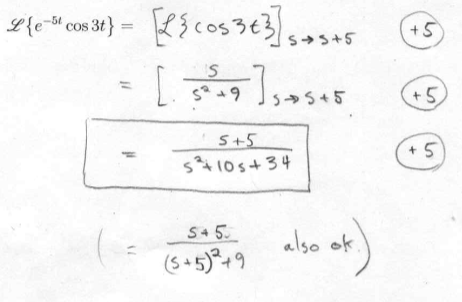 ℒ{e^{-5t} cos 3t} = [ℒ{cos3t}]_{s→s+5} +5
= [s/(s²+9)]_{s→s+5} +5
= (s+5)/(s²+10s+34) +5
(= (s+5)/((s+5)²+9) also ok.)